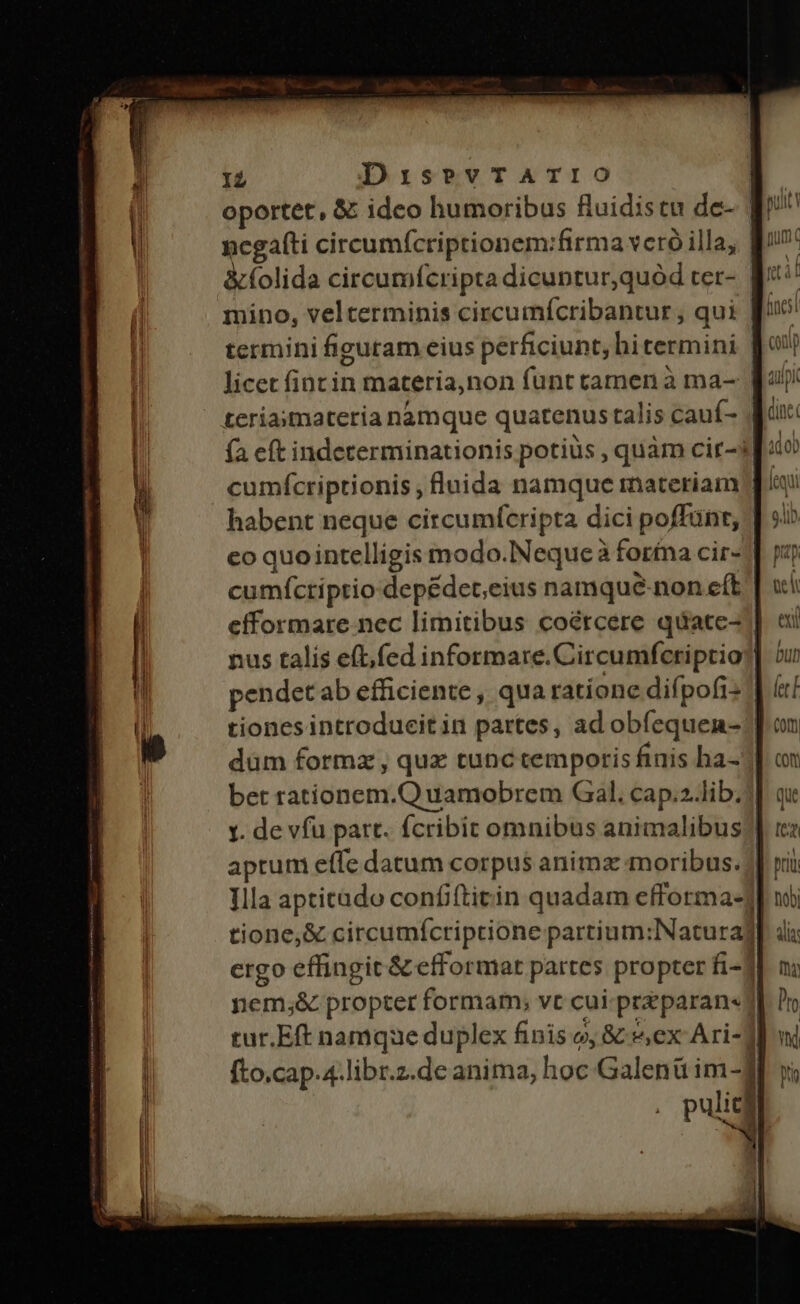 12 DISPVTATIO
oportet, & ideo humoribus fluidis tu de-
negaſti circumſcriptionem:firma verò illa,
&ſolida circumſcripta dicuntur,quòd ter-
mino, vel terminis circumſcribantur, qui
termini figuram eius perficiunt, hi termini
licet ſint in materia,non ſunt tamen à ma-
teria;materia námque quatenus talis cauſ-
ſa eſt indeterminationis potiùs, quàm cir-
cumſcriptionis, fluida namque materiam
habent neque circumſcripta dici poſſunt,
eo quo intelligis modo.Neque à forma cir-
cumſcriptio depēdet,eius namque non eſt
efformare nec limitibus coërcere quate-
nus talis eſt,ſed informare.Circumſcriptio
pendet ab efficiente, qua ratione diſpoſi-
tiones introducit in partes, ad obſequen-
dum formæ, quæ tunc temporis finis ha-
bet rationem.Quamobrem Gal. cap.2.lib.
1. de vſu part. ſcribit omnibus animalibus
aptum eſſe datum corpus animæ moribus.
Illa aptitudo conſiſtit in quadam efforma-
tione,& circumſcriptione partium:Natura
ergo effingit & efformat partes propter fi-
nem,& propter formam, vt cui præparan-
tur.Eſt namque duplex finis &,ex Ari-
ſto.cap.4.libr.2.de anima, hoc Galenū im-
pulit